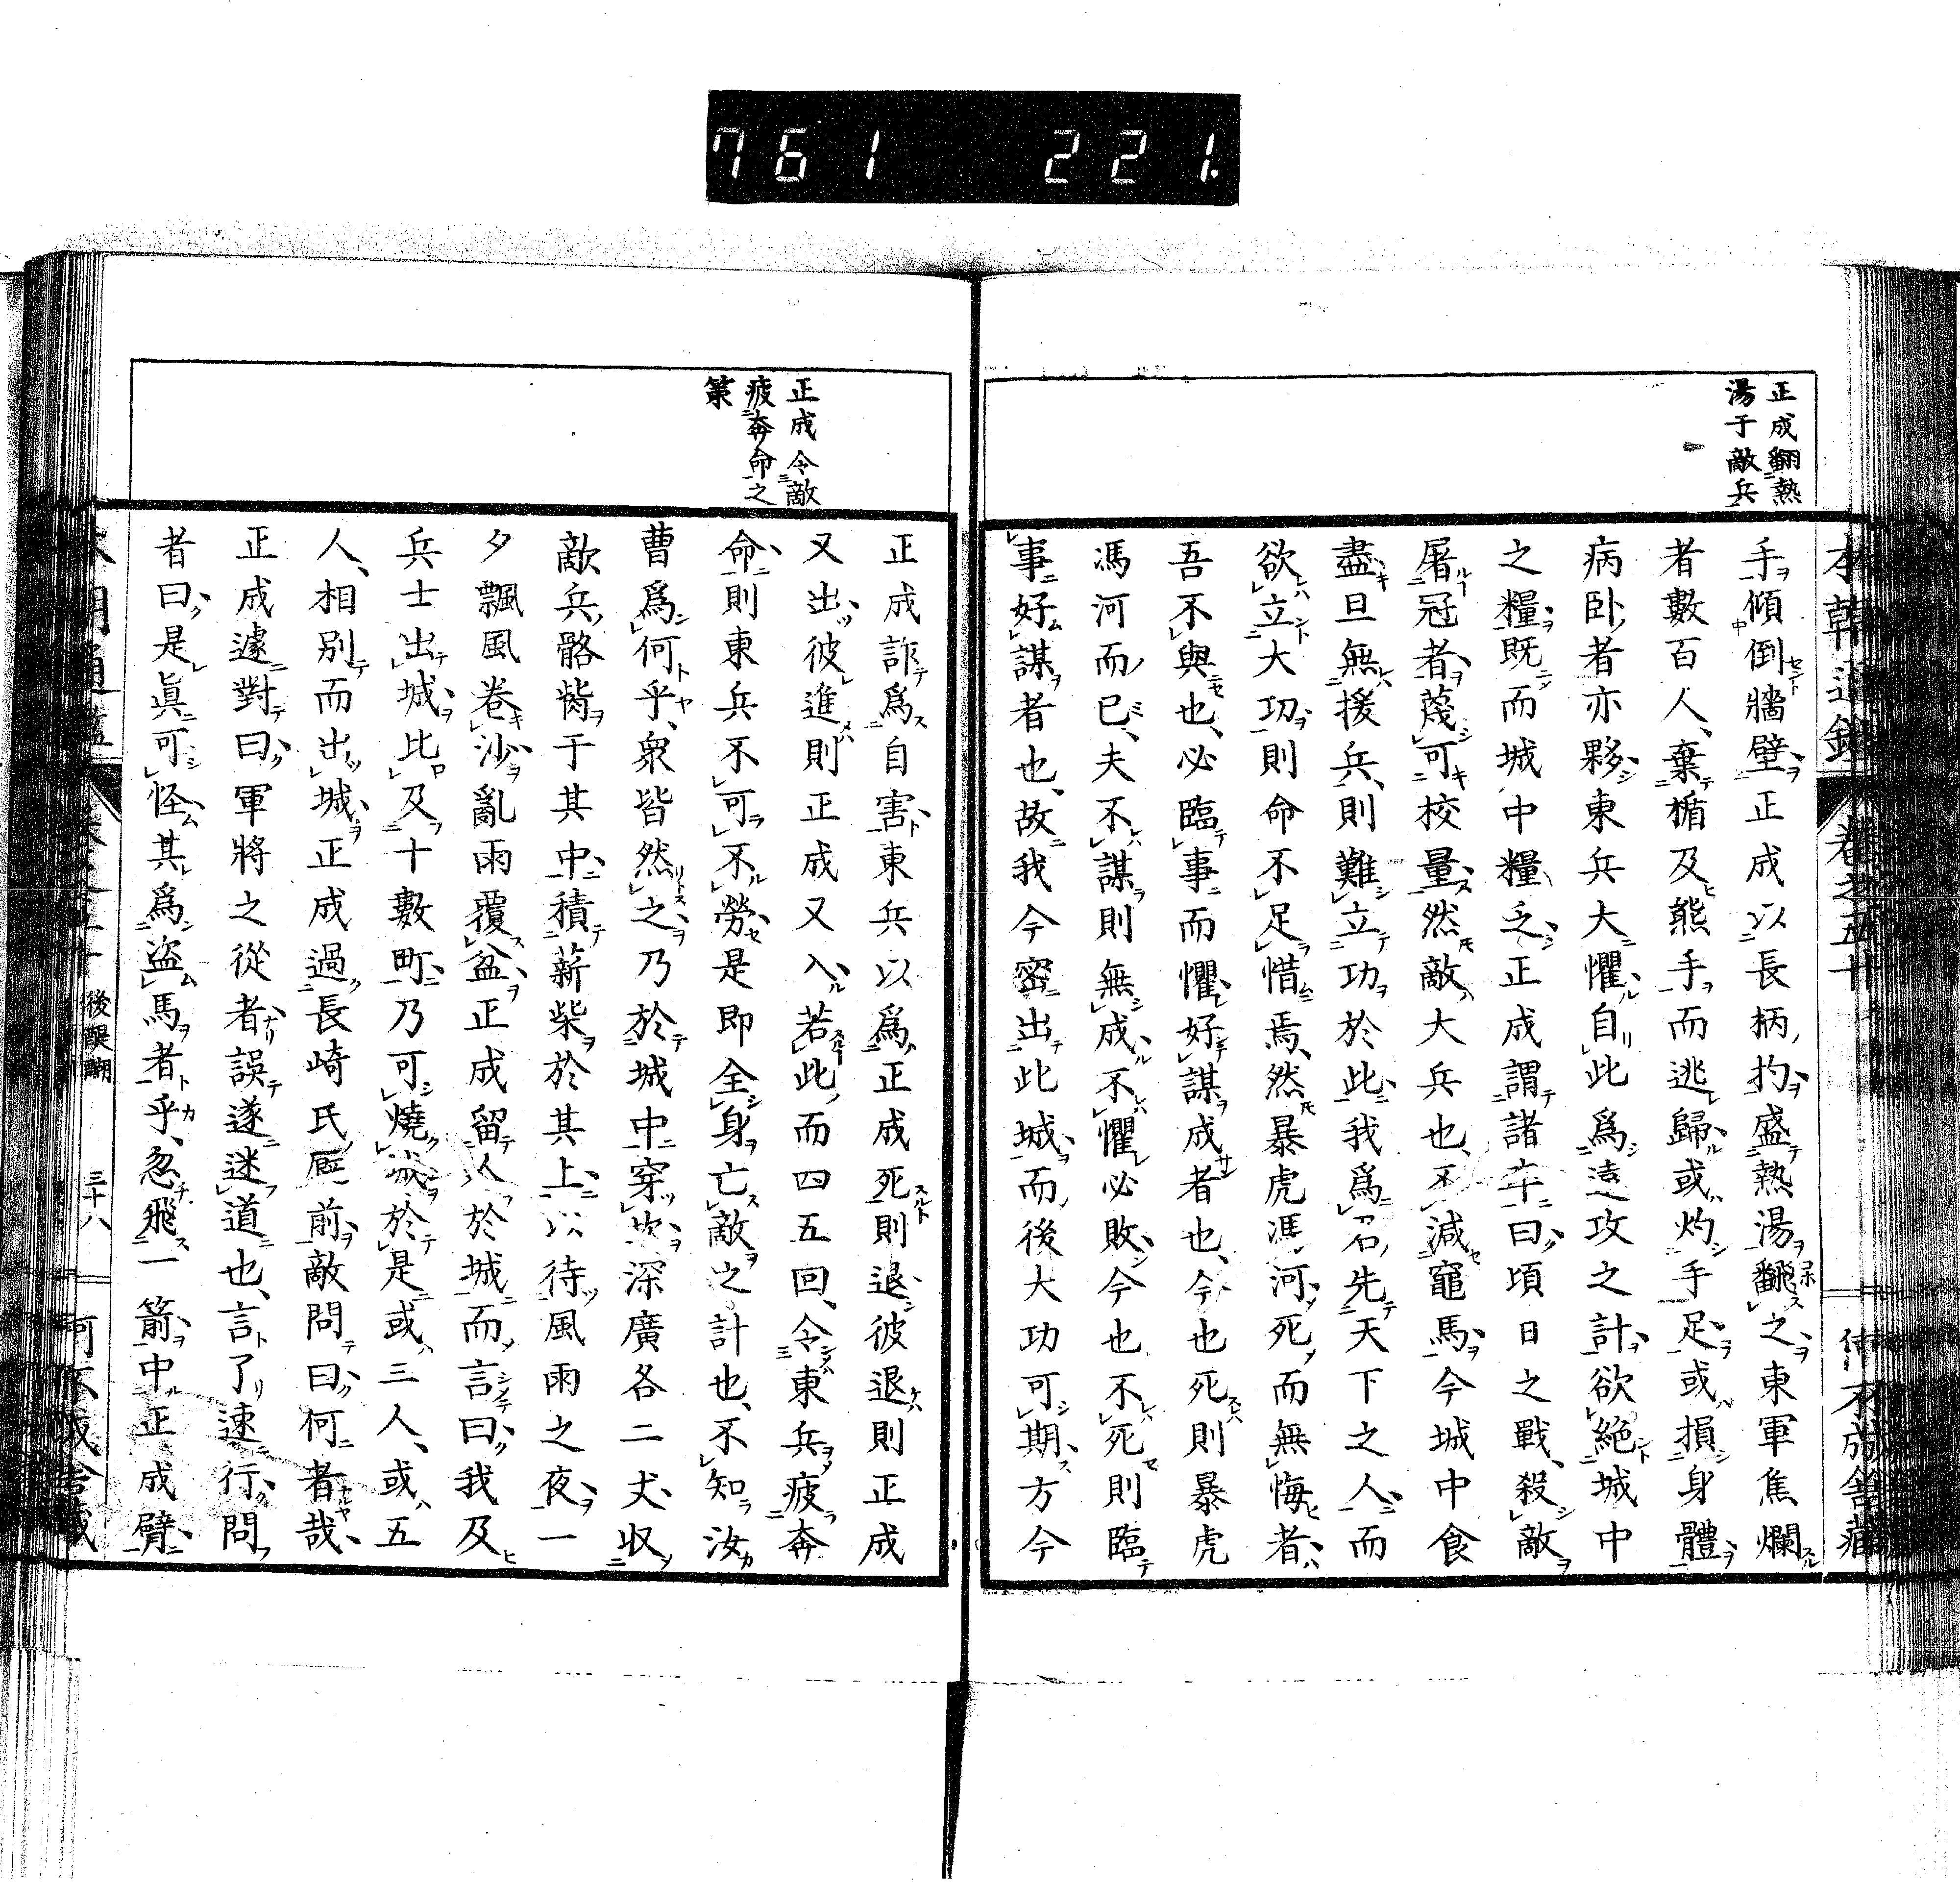 761 221.
正成翻熱
湯于敵兵
手傾倒牆壁正成以長柄杓盛熱湯翻之東軍焦爛
者數百人、棄楯及熊手而逃歸或灼手足或損身體
病卧者亦夥東兵大懼自此爲遠攻之計欲絶城中
之糧既而城中糧乏正成謂諸卒曰頃日之戰、殺敵
屠冠者蔑可校量然敵大兵也、不減竈馬今城中食
盡且無援兵、則難立功於此我爲名先天下之人而
欲立大功則命不足惜焉、然暴虎馮河死而無悔者、
吾不與也、必臨事而懼好謀成者也、今也死則暴虎
馮河而已、夫不謀則無成不懼必敗今也不死則臨
事好謀者也、故我今密出此城而後大功可期方今
正成令敵
疲奔命之
策
正成詐爲自害東兵以爲正成死則退彼退則正成
又出彼進則正成又入若此而四五回、令東兵疲奔
命則東兵不可不勞是即全身亡敵之計也、不知汝
曹爲何乎、衆皆然之乃於城中穿坎深廣各二丈収
敵兵骼胔于其中積薪柴於其上以待風雨之夜一
夕飄風卷沙亂雨覆盆正成留人於城而言曰我及
兵士出城比及十數町乃可燒城於是或三人、或五
人、相別而出城正成過長崎氏厩前敵問曰何者哉、
正成遽對曰軍將之從者誤遂迷道也、言了速行問
者曰是眞可怪其爲盜馬者乎、忽飛一箭中正成臂
後醍醐 三十八